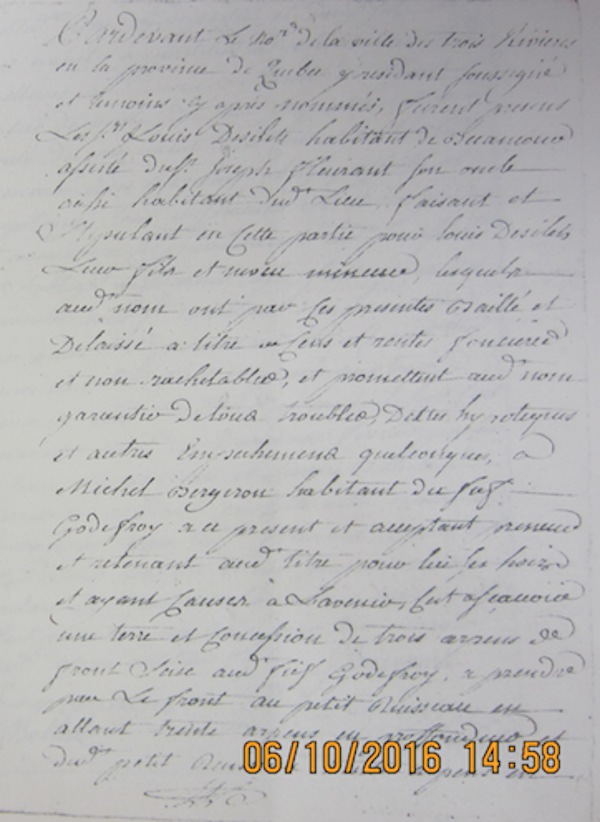 Pardevant Le no.re de la ville des trois Rivieres
en la province de Quebec y residant soussigné
et temoins cy après nommés, furent presens
Les Srs Louis Desilets habitant de Becancour
assisté du Sr Joseph fleurant son oncle
aussi habitant dud. Lieu, faisant et
Stipulant en Cette partie pour Louis Desilets
Leur fils et neveu mineur, lesquels
aud nom ont par Ces presentes Baillé et
Delaissé a titre de Cens et rentes foncieres
et non rachetables, et promettent aud nom
garantir de tous troubles, Dettes hypoteques
et autres Empechemens quelconques, a
Michel Bergeron habitant du fief
Godefroy a ce present et acceptant preneur
et retenant aud titre pour lui ses hoirs
et ayant Causes a Lavenir, C'est asçavoir
une terre et Concession de trois arpens de
front Scise aud fief Godefroy, a prendre
par Le front au petit Ruisseau en
allant trente arpens en proffondeur et
dud. petit en
06/10/2016 14:58